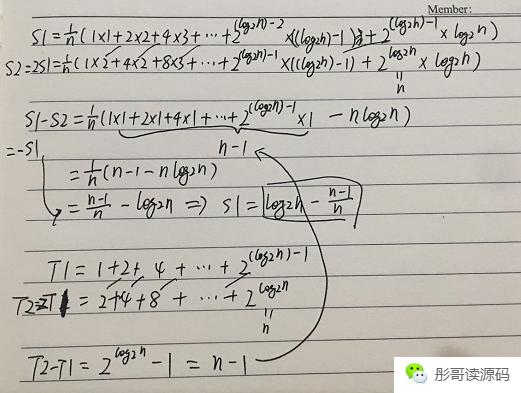 Member:
S1 = 1/n (1×1 + 2×2 + 4×3 + ... + 2^((log2n)-2) × ((log2n)-1) + 2^((log2n)-1) × log2n)
S2 = 2S1 = 1/n (1×2 + 4×2 + 8×3 + ... + 2^((log2n)-1) × ((log2n)-1) + 2^(log2n) × log2n)
=
n
S1-S2 = 1/n (1×1 + 2×1 + 4×1 + ... + 2^((log2n)-1) ×1 - nlog2n)
= -S1
n-1
= 1/n (n-1-nlog2n)
= (n-1)/n - log2n => S1 = log2n - (n-1)/n
T1 = 1+2+ 4 + ... + 2^((log2n)-1)
T2=2T1 = 2+4+8 + ... + 2^(log2n)
=
n
T2-T1 = 2^(log2n) - 1 = n-1
彤哥读源码